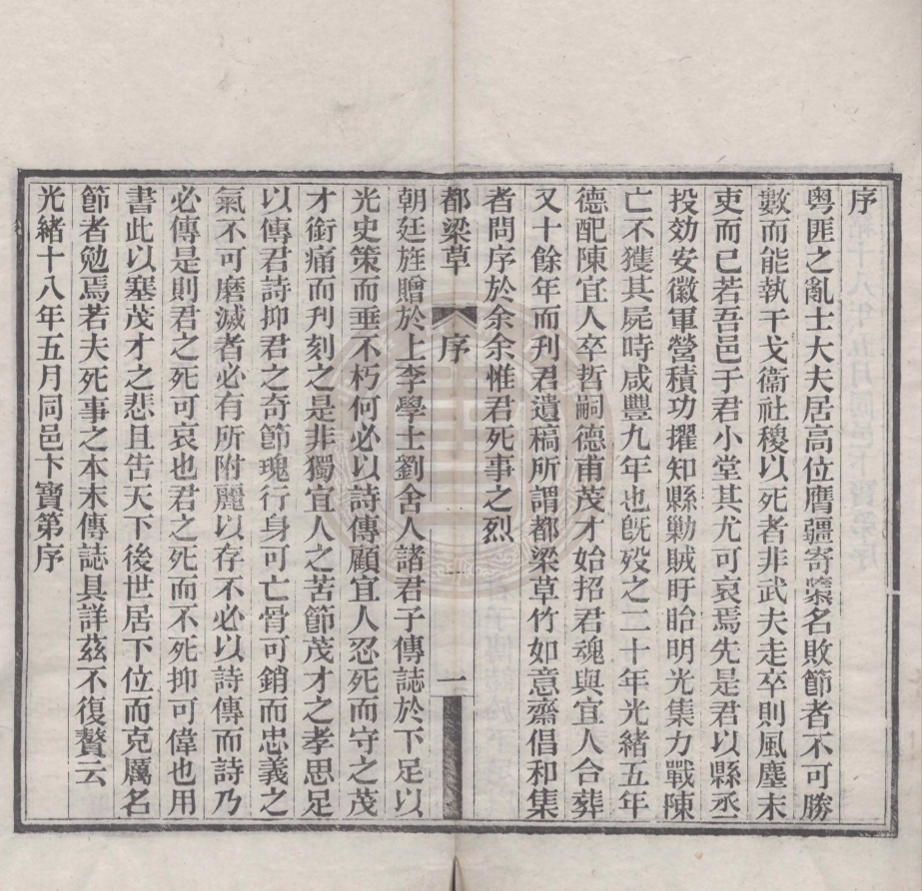 序
粵匪之亂士大夫居高位膺疆寄隳名敗節者不可勝
數而能執干戈衞社稷以死者非武夫走卒則風塵末
吏而已若吾邑于君小堂其尤可哀焉先是君以縣丞
投効安徽軍營積功擢知縣勦賊盱眙明光集力戰陳
亡不獲其屍時咸豐九年也旣歿之二十年光緒五年
德配陳宜人卒哲嗣德甫茂才始招君魂與宜人合葬
又十餘年而刊君遺稿所謂都梁草竹如意齋倡和集
者問序於余余惟君死事之烈
都梁草 序 一
朝廷旌贈於上李學士劉舍人諸君子傳誌於下足以
光史策而垂不朽何必以詩傳顧宜人忍死而守之茂
才銜痛而刊刻之是非獨宜人之苦節茂才之孝思足
以傳君詩抑君之奇節瑰行身可亡骨可銷而忠義之
氣不可磨滅者必有所附麗以存不必以詩傳而詩乃
必傳是則君之死可哀也君之死而不死抑可偉也用
書此以塞茂才之悲且告天下後世居下位而克厲名
節者勉焉若夫死事之本末傳誌具詳茲不復贅云
光緒十八年五月同邑卞寶第序